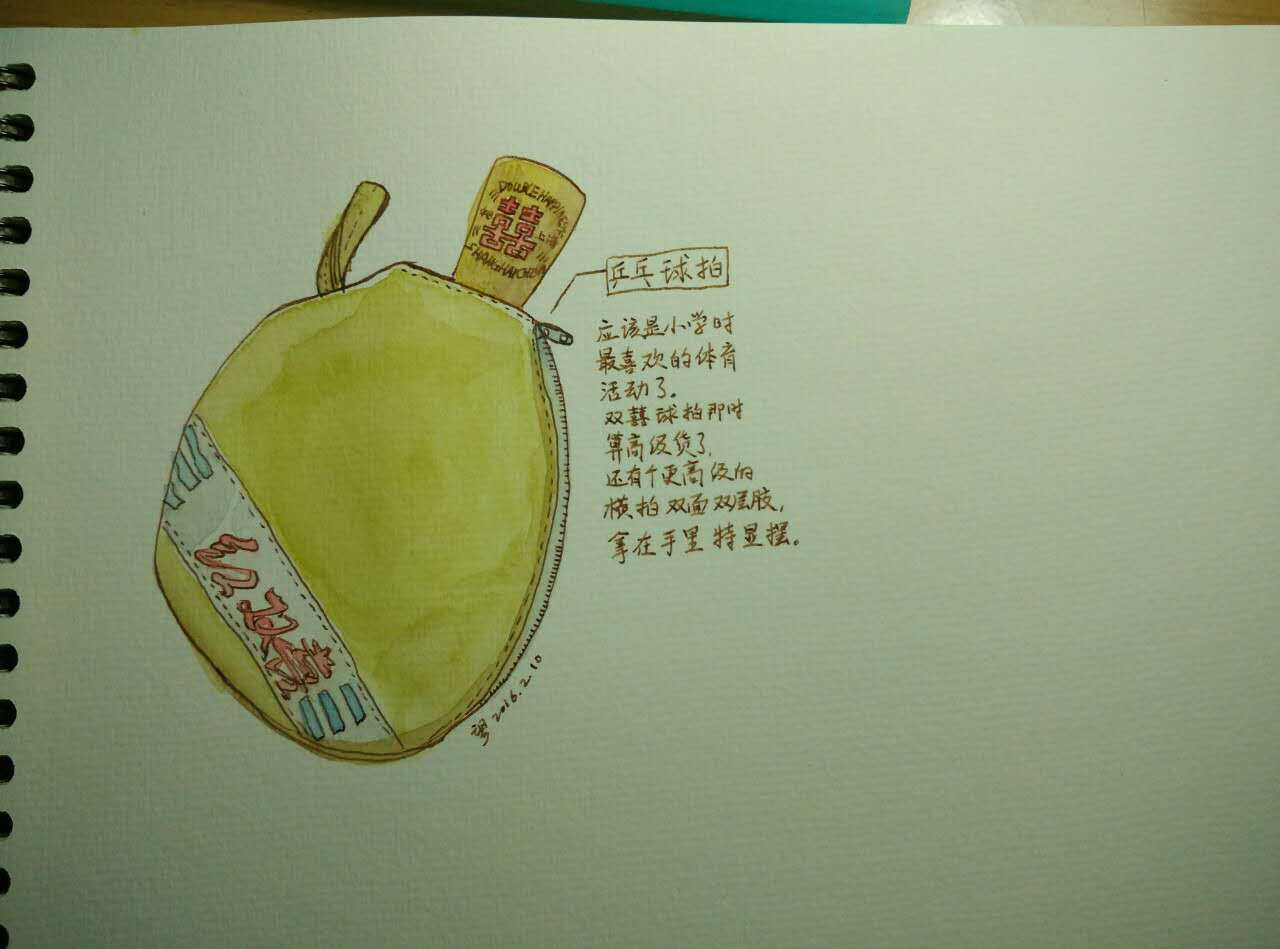 DOUBLE HAPPINESS
囍
上海
SHANGHAI CHINA
乒乓球拍
应该是小学时
最喜欢的体育
活动了。
双囍球拍那时
算高级货了,
还有个更高级的
横拍双面双层胶,
拿在手里特显摆。
红双喜
2016.2.10